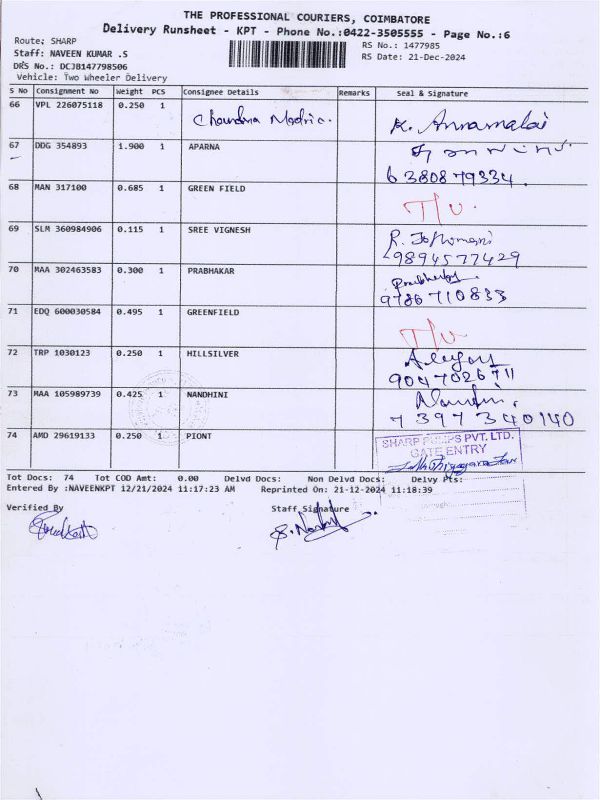 THE PROFESSIONAL COURIERS, COIMBATORE
Delivery Runsheet - KPT - Phone No.:0422-3505555 - Page No.:6
Route; SHARP
RS No.: 1477985
Staff: NAVEEN KUMAR .S
RS Date: 21-Dec-2024
DRS No.: DCJB147798506
Vehicle: Two Wheeler Delivery
S No Consignment No Weight PCS Consignee Details Remarks Seal & Signature
66 VPL 226075118 0.250 1 K. Annamalai
67 DDG 354893 1.900 1 APARNA
6380879334
68 MAN 317100 0.685 1 GREEN FIELD
69 SLM 360984906 0.115 1 SREE VIGNESH
9894577429
70 MAA 302463583 0.300 1 PRABHAKAR
9786710833
71 EDQ 600030584 0.495 1 GREENFIELD
72 TRP 1030123 0.250 1 HILLSILVER
9047026711
73 MAA 105989739 0.425 1 NANDHINI
7397340140
74 AMD 29619133 0.250 1 PIONT
SHARP PUMPS PVT. LTD.
GATE ENTRY
Tot Docs: 74 Tot COD Amt: 0.00 Delvd Docs: Non Delvd Docs: Delvy Pts:
Entered By :NAVEENKPT 12/21/2024 11:17:23 AM Reprinted On: 21-12-2024 11:18:39
Verified By Staff Signature